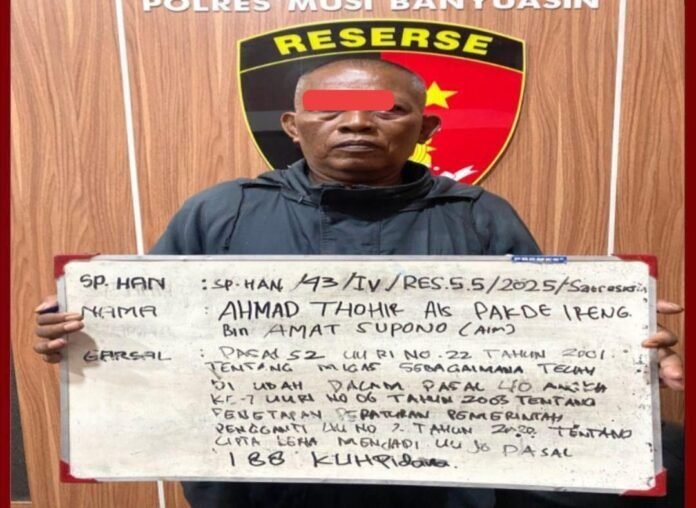 POLRES MUSI BANYUASIN
RESERSE
PROMES
SP. HAN : SP. HAN /93/IV/RES.5.5/2025/Satreskrim
NAMA : AHMAD THOHIR Als PAKDE IRENG
Bin AMAT SUPONO (Alm)
GARSAL : PASAL 52 UU RI NO. 22 TAHUN 2001
TENTANG MIGAS SEBAGAIMANA TELAH
DI UBAH DALAM PASAL 40 ANGKA
KE-7 UU RI NO 06 TAHUN 2003 TENTANG
PENETAPAN PERATURAN PEMERINTAH
PENGGANTI UU NO 2 TAHUN TENTANG
CIPTA MENJADI UU JO PASAL
188 KUHPidana.